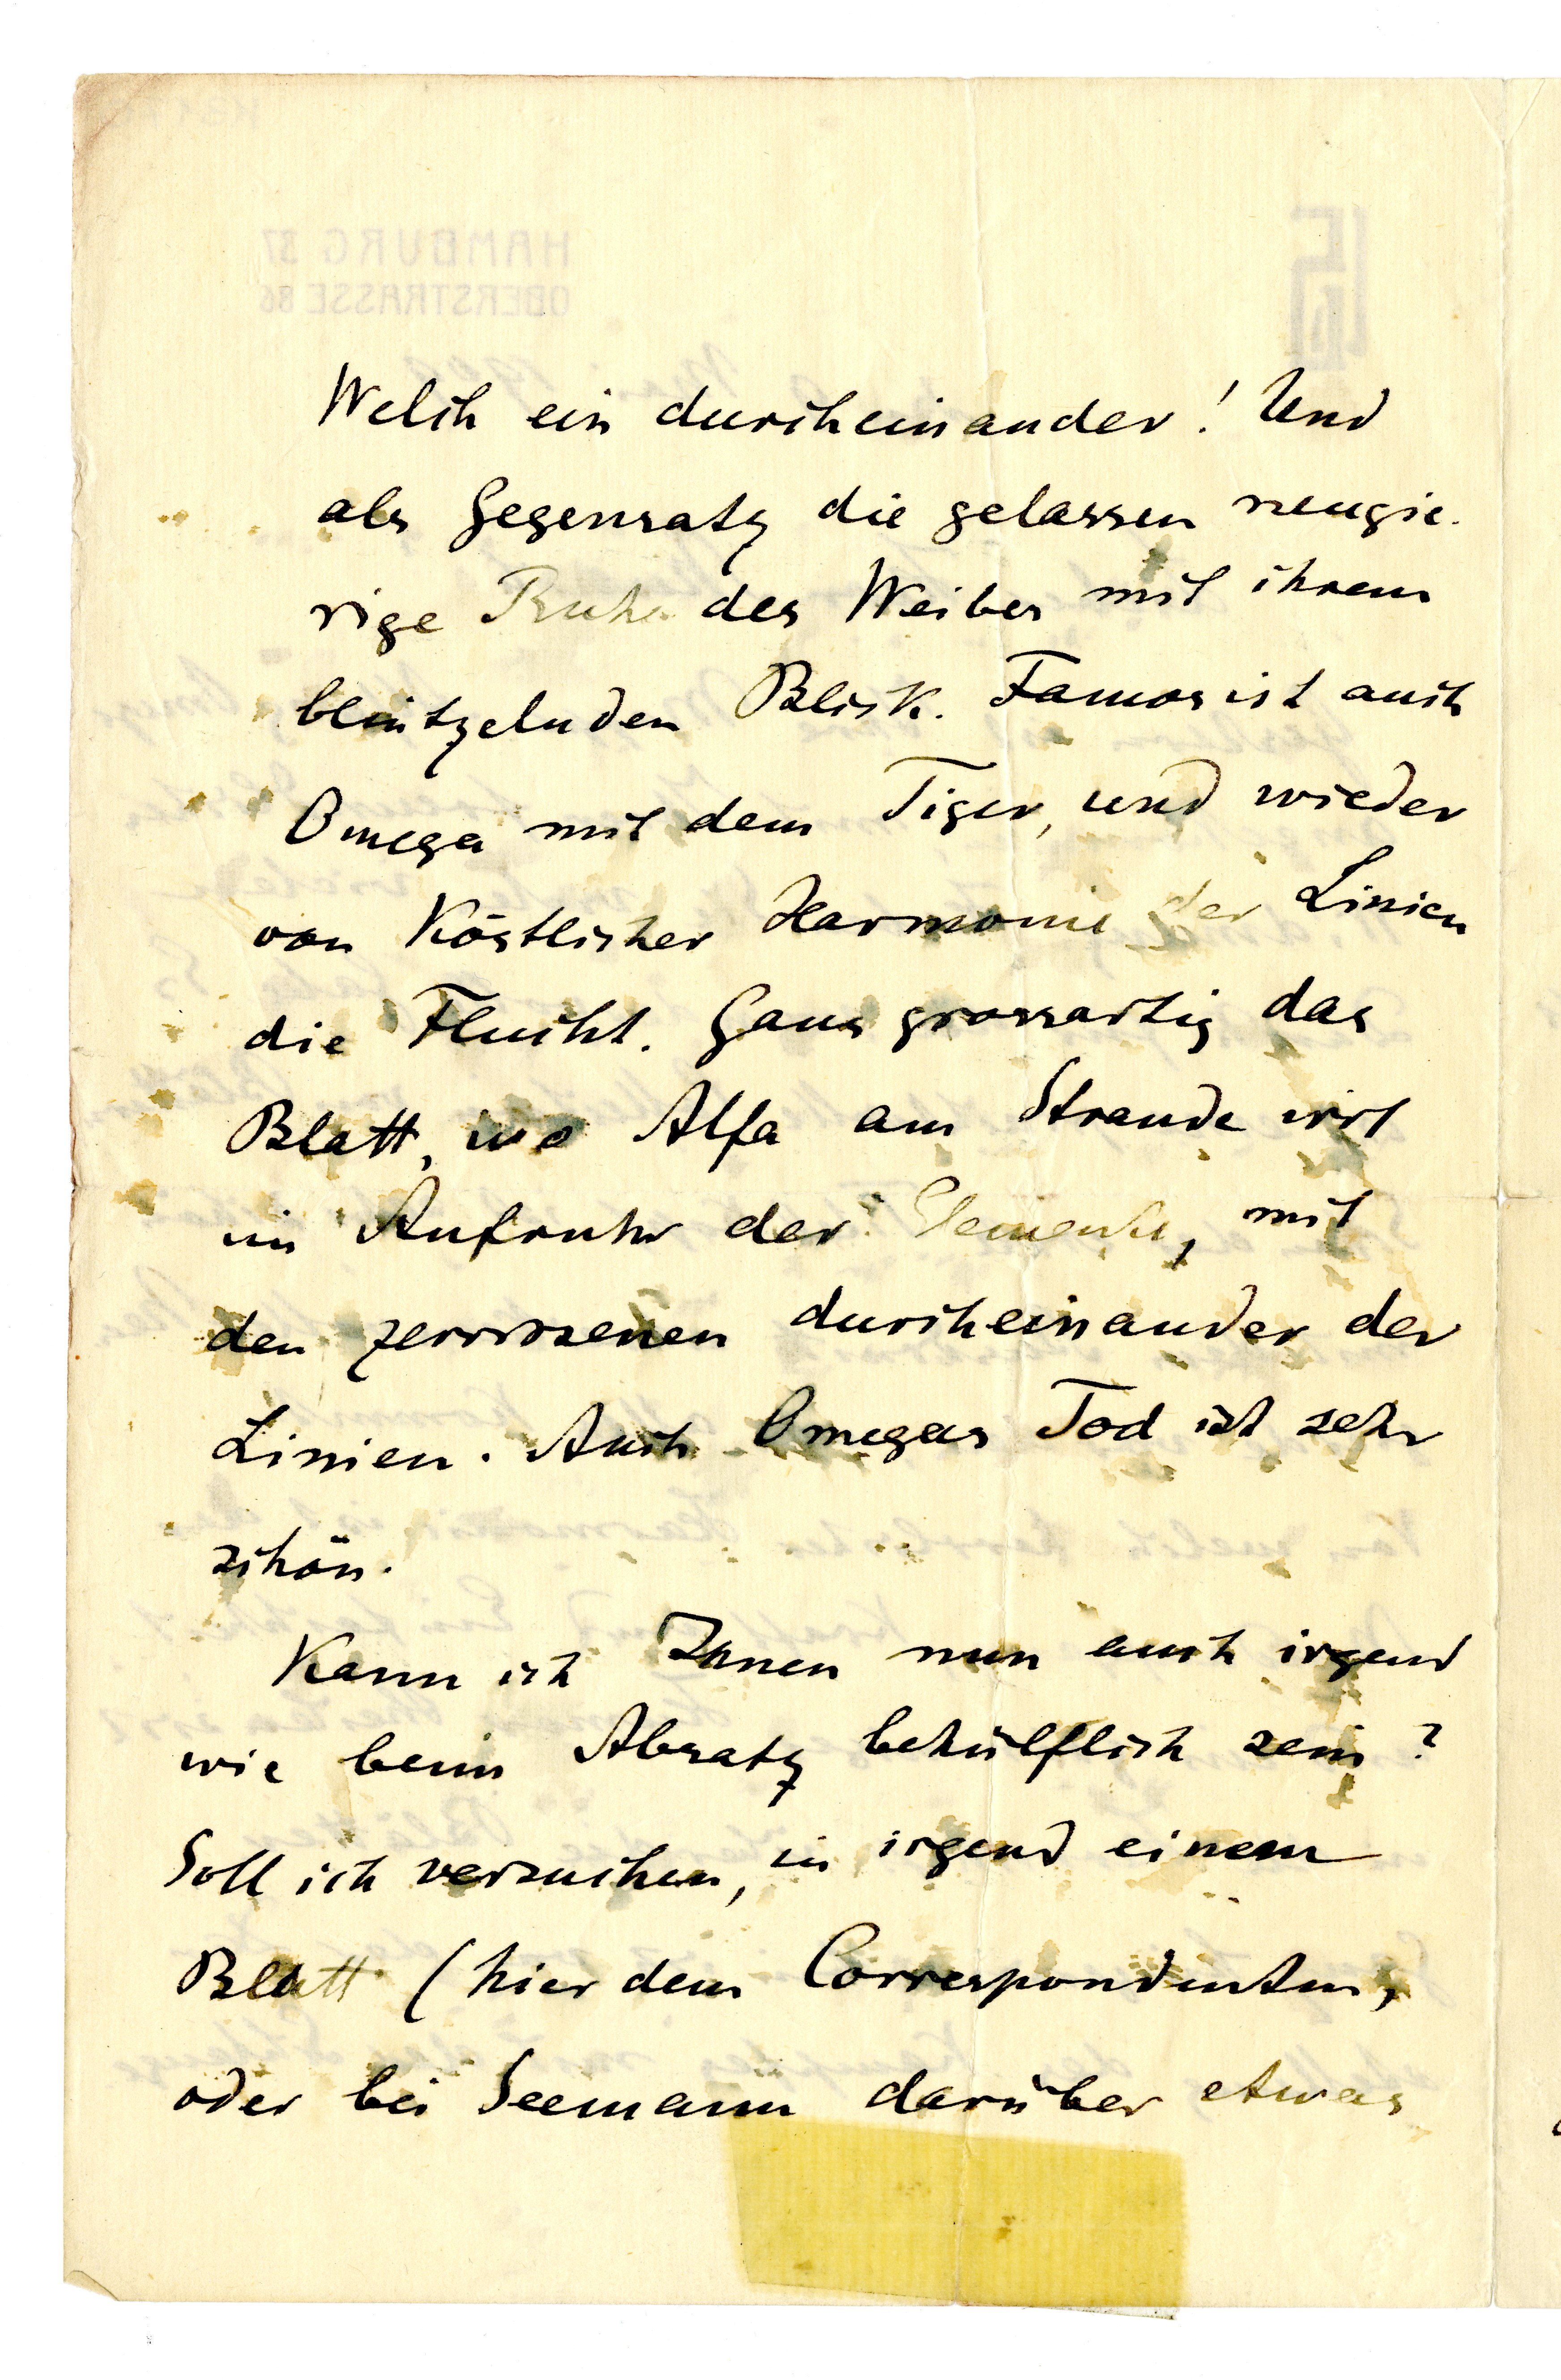 Welch ein durcheinander! Und
als Gegensatz die gelassen neugie-
rige Ruhe des Weibes mit ihrem
blintzelnden Blick. Famos ist auch
Omega mit dem Tiger, und wieder
von köstlicher Harmonie der Linien
die Flucht. Ganz grossartig das
Blatt, wo Alfa am Strande irrt
im Aufruhr der Elemente, mit
den zerrissenen durcheinander der
Linien. Auch Omegas Tod ist sehr
schön.
Kann ich Ihnen nun auch irgend
wie beim Absatz behülflich sein?
Soll ich versuchen, in irgend einem
Blatt (hier dem Correspondenten,
oder bei Seemann darüber etwas
HAMBURG 37
OBERSTRASSE 86